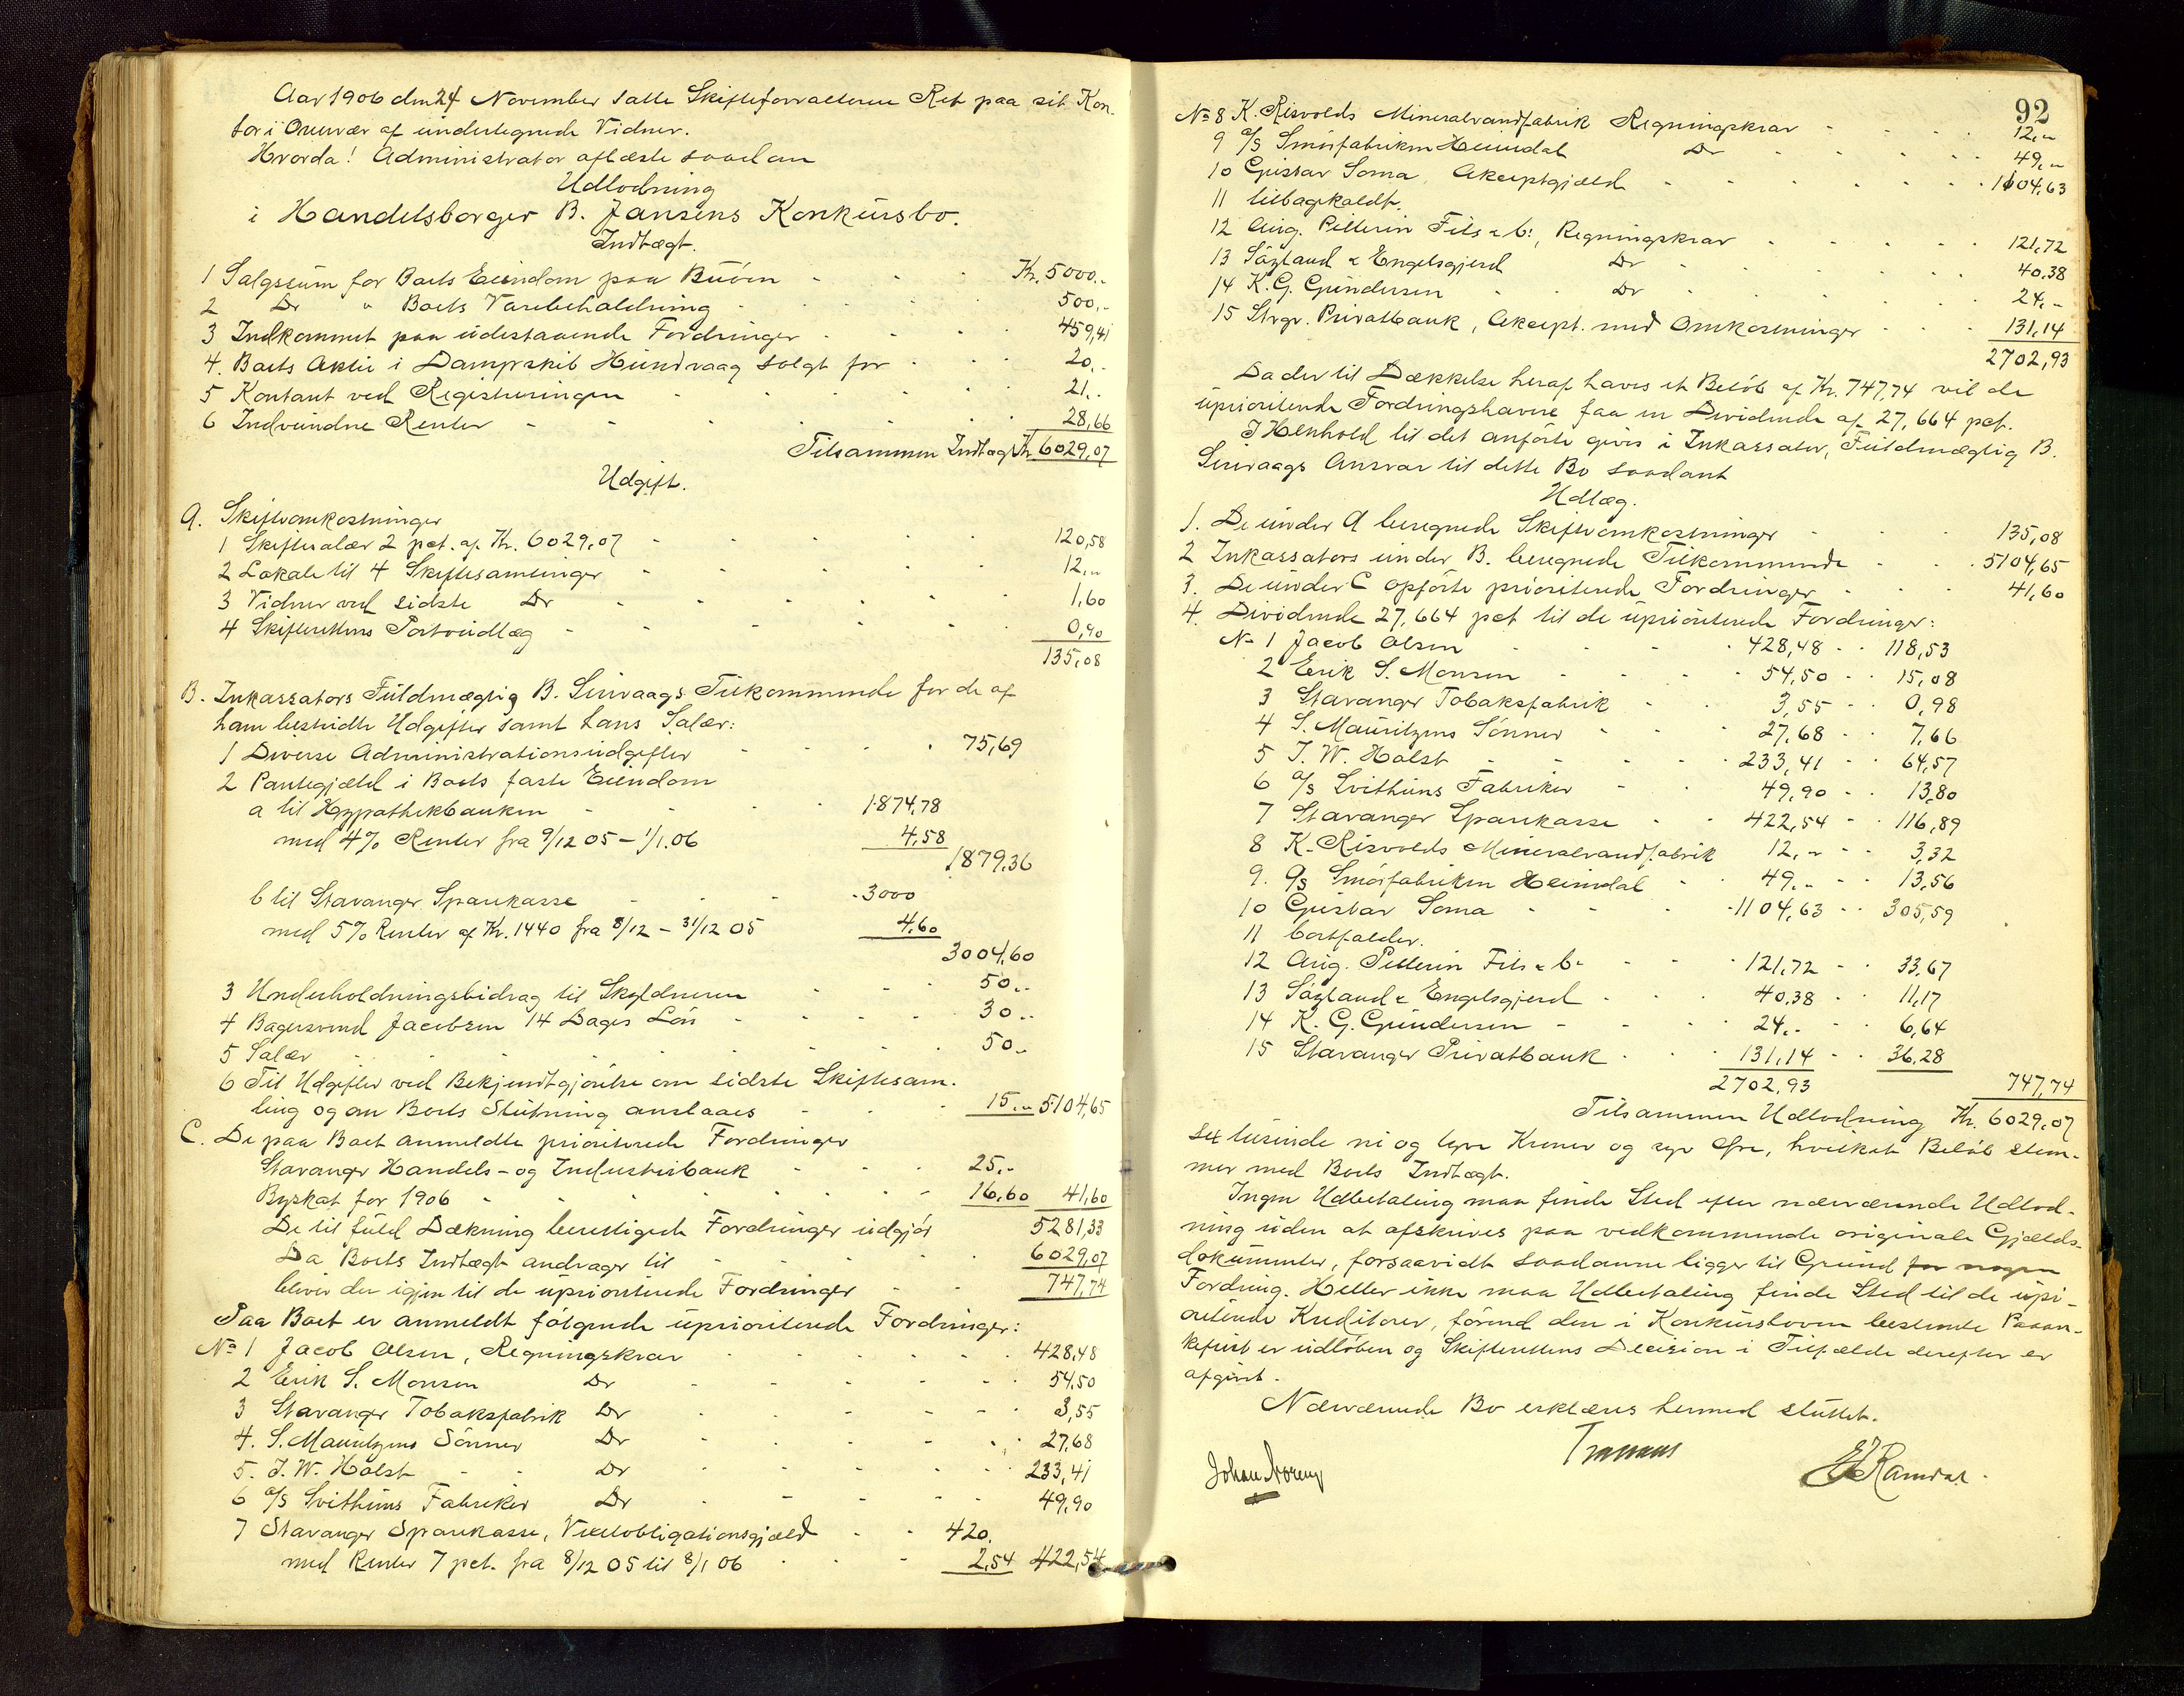 Aar 1906 den 24 November satte Skifteforvalteren Ret paa sit Kon-
tor i Overvær af undertegnede Vidner.
Hvorda! Administrator oplæste saadan
Udlodning
i Handelsborger B. Jansens Konkursbo.
Indtægt.
1 Salgssum for Boets Eiendom paa Buøen - - - Kr. 5000..
2 Do " Boets Varebeholdning - - - 500,-
3 Indkommet paa udestaaende Fordringer - - - 459,41
4. Boets Aktie i Dampskib Hundvaag solgt for - - - 20,-
5 Kontant ved Registreringen - - - 21..
6 Indvundne Renter - - - 28,66
Tilsammen Indtægt Kr 6029,07
Udgift.
A. Skifteomkostninger
1 Skiftesalær 2 pct. af Kr. 6029,07 - - - 120,58
2 Lokale til 4 Skiftesamlinger - - - 12,-
3 Vidner ved sidste Do - - - 1,60
4 Skifterettens Portoudlæg - - - 0,90
135,08
B. Inkassators Fuldmægtig B. Sunvaags Tilkommende for de af
ham bestridte Udgifter samt hans Salær:
1 Diverse Administrationsudgifter - - - 75,69
2 Pantegjæld i Boets faste Eiendom
a til Hypothekbanken - - - 1874,78
med 4% Renter fra 9/12 05 - 1/1.06 4,58
1879,36
b til Stavanger Sparekasse - - - 3000
med 5% Renter af Kr. 1440 fra 8/12 - 31/12 05 4,60
3004,60
3 Underholdningsbidrag til Skyldneren - - - 50..
4 Bagersvend Jacobsen 14 Dages Løn - - - 30..
5 Salær - - - 50..
6 Til Udgifter ved Bekjendtgjørelse om sidste Skiftesam-
ling og om Boets Slutning anslaaes - - - 15,- 5104,65
C. De paa Boet anmeldte prioriterede Fordringer
Stavanger Handels- og Industribank - - - 25,-
Byskat for 1906 - - - 16,60 41,60
De til fuld Dækning berettigede Fordringer udgjør 5281,33
Da Boets Indtægt andrager til - - - 6029,07
bliver der igjen til de uprioriterede Fordringer - - - 747,74
Paa Boet er anmeldt følgende uprioriterede Fordringer:
No 1 Jacob Olsen, Regningskrav - - - 428,48
2 Erik S. Monsen Do - - - 54,50
3 Stavanger Tobaksfabrik Do - - - 3,55
4. S. Mauritzens Sønner Do - - - 27,68
5. J. W. Holst - - Do - - - 233,41
6 A/S Svithuns Fabriker Do - - - 49,90
7 Stavanger Sparekasse, Vexelobligationsgjæld - - 420.
med Renter 7 pct. fra 8/12 05 til 8/1 06 - - - 2,54 422,54
92
No 8 K. Risvolds Mineralvandfabrik Regningskrav - - - 12,-
9 A/S Smørfabriken Heimdal Do - - - 49,-
10 Gustav Soma, Akceptgjæld - - - 1104,63
11 tilbagekaldt.
12 Aug. Pellerin Fils & Co:, Regningskrav - - - 121,72
13 Søyland & Engelsgjerd Do - - - 40,38
14 K. G. Gundersen - - Do - - - 24,-
15 Stvgr. Privatbank, Akcept. med Omkostninger - - - 131,14
2702,93
Da der til Dækkelse heraf haves et Beløb af Kr. 747,74 vil de
uprioriterede Fordringshavere faa en Dividende af 27,664 pct.
I Henhold til det anførte gives i Inkassator, Fuldmægtig B.
Sunvaags Ansvar til dette Bo saadant
Udlæg.
1. De under A beregnede Skifteomkostninger - - - 135,08
2 Inkassators under B. beregnede Tilkommende - - - 5104,65
3. De under C opførte prioriterede Fordringer - - - 41,60
4. Dividende 27,664 pct til de uprioriterede Fordringer:
No 1 Jacob Olsen - - - 428,48 - - 118,53
2 Erik S. Monsen - - - 54,50 - - 15,08
3 Stavanger Tobaksfabrik - - 3,55 - - 0,98
4 S. Mauritzens Sønner - - 27,68 - - 7,66
5 J. W. Holst - - - 233,41 - - 64,57
6 A/S Svithuns Fabriker - - 49,90 - - 13,80
7 Stavanger Sparekasse - - 422,54 - - 116,89
8 K. Risvolds Mineralvandfabrik 12,- - - 3,32
9. A/S Smørfabriken Heimdal - - 49,- - - 13,56
10 Gustav Soma - - - 1104,63 - - 305,59
11 bortfalder.
12 Aug. Pellerin Fils & Co - - - 121,72 - - 33,67
13 Søyland & Engelsgjerd - - - 40,38 - - 11,17
14 K. G. Gundersen - - - 24,- - - 6,64
15 Stavanger Privatbank - - - 131,14 - - 36,28
2702,93 747,74
Tilsammen Udlodning Kr. 6029,07
Sex tusinde ni og tyve Kroner og syv Øre, hvilket Beløb stem-
mer med Boets Indtægt.
Ingen Udbetaling maa finde Sted efter nærværende Udlod-
ning uden at afskrives paa vedkommende originale Gjælds-
dokumenter, forsaavidt saadanne ligger til Grund for nogen
Fordring. Heller ikke maa Udbetaling finde Sted til de upri-
oriterede Kreditorer, førend den i Konkursloven bestemte Paaan-
kefrist er udløben og Skifterettens Decision i Tilfælde derefter er
afgivet.
Nærværende Bo erklæres hermed sluttet.
Johan Noreng